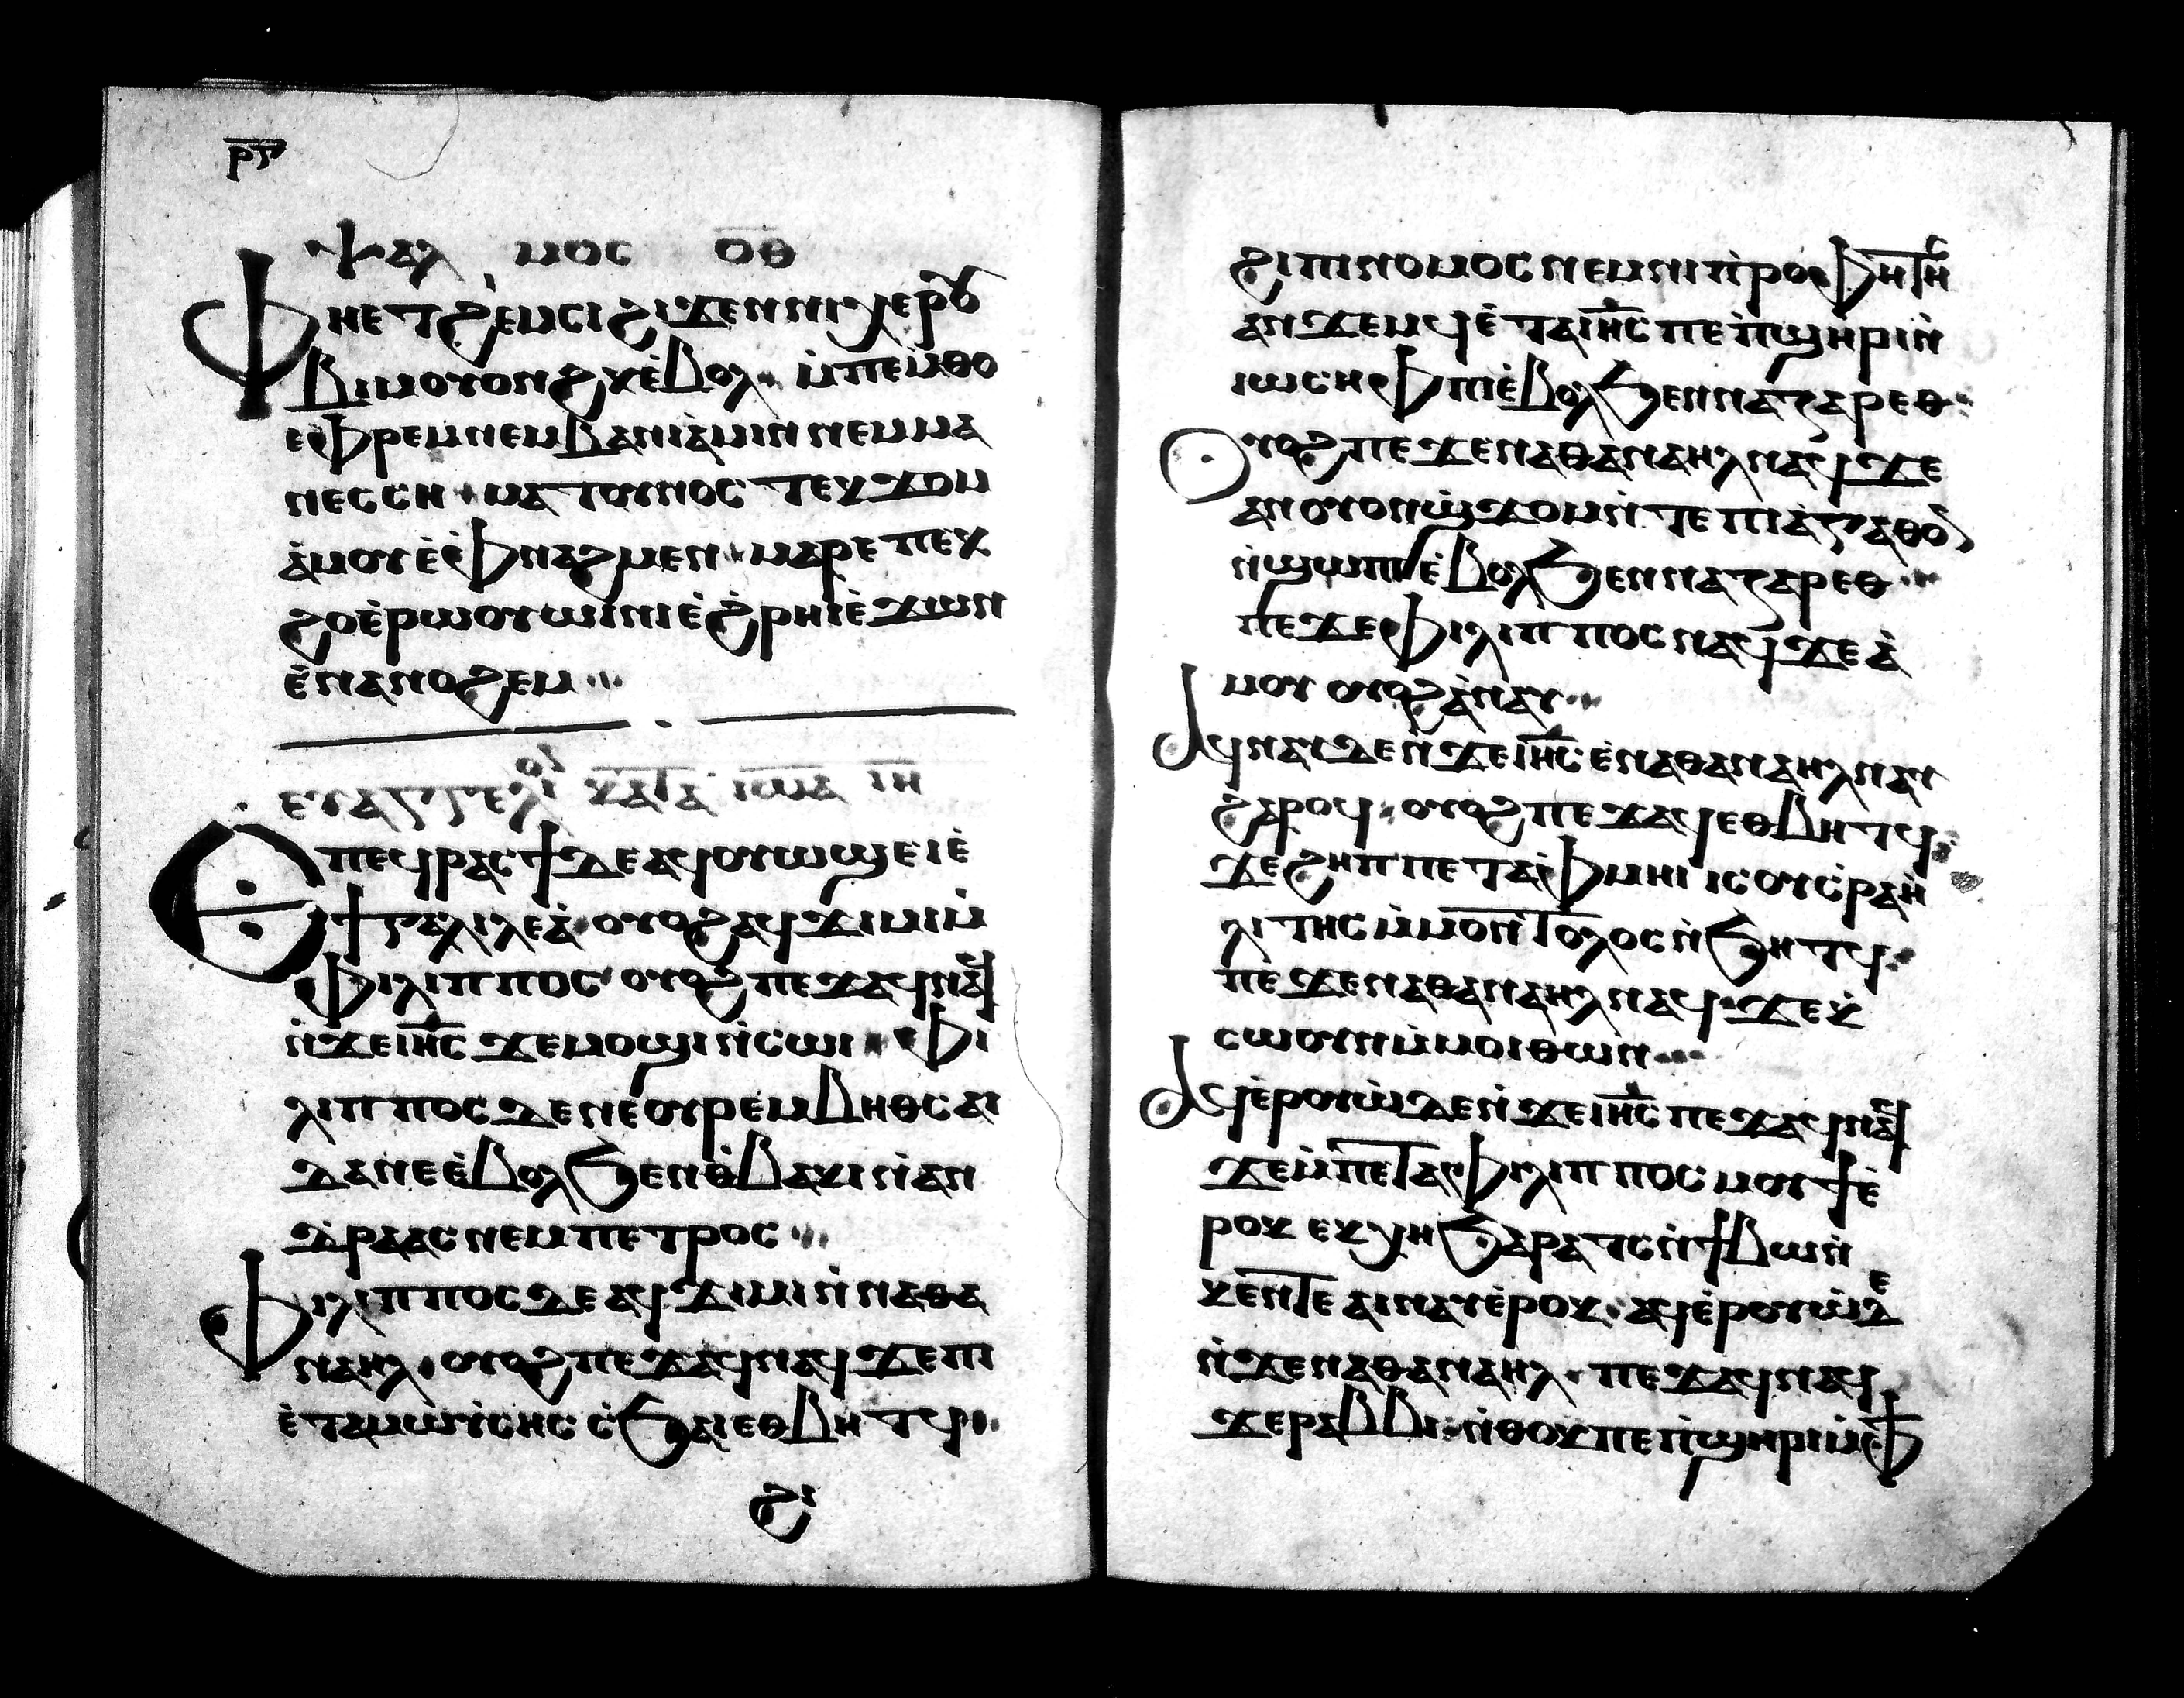 ⲣⲅ
ⲯⲁⲗ ⲙⲟⲥ ⲟ̅ⲑ̅
ⲫⲏⲉⲧϩⲉⲙⲥⲓ ϩⲓϫⲉⲛ ⲛⲓⲭⲉⲣⲟⲩ
ⲃⲓⲙ ⲟⲩⲟⲛϩⲕ ⲉ̀ⲃⲟⲗ ⲙ̀ⲡⲉⲙ̀ⲑⲟ
ⲉⲫⲣⲉⲙ ⲛⲉⲙ ⲃⲁⲛⲓⲁ̀ⲙⲓⲛ ⲛⲉⲙ ⲙⲁ
ⲛⲉⲥⲥⲏ ⲙⲁⲧⲟⲩⲛⲟⲥ ⲧⲉⲕϫⲟⲙ
ⲁ̀ⲙⲟⲩ ⲉ̀ⲉ̀ⲫⲛⲁϩⲙⲉⲛ ⲙⲁⲣⲉ ⲡⲉⲕ
ϩⲟ ⲉ̀ⲣⲱⲟⲩⲱⲓⲛⲓ ⲉ̀ϩ̀ⲣⲏⲓ ⲉ̀ϫⲱⲛ
ⲉ̀ⲛⲁⲛⲟϩⲉⲙ
ⲉⲩⲁⲅⲅⲉⲗⲓⲟⲛ ⲕⲁⲧⲁ ⲓⲱⲁ ⲓⲏ
ⲉⲡⲉϥⲣⲁⲥϯ ⲇⲉ ⲁϥⲟⲩⲱϣ ⲉ̀ⲓ ⲉ̀
ϯⲅⲁⲗⲓⲗⲉⲁ̀ ⲟⲩⲟϩ ⲁϥϫⲓⲙⲓ ⲙ̀
ⲫⲓⲗⲓⲡⲡⲟⲥ ⲟⲩⲟϩ ⲡⲉϫⲁϥ ⲛⲁϥ
ⲛ̀ϫⲉ ⲓⲏ̅ⲥ̅ ϫⲉ ⲙⲟϣⲓ ⲛ̀ⲥⲱⲓ ⲫⲓ
ⲗⲓⲡⲡⲟⲥ ⲇⲉ ⲛⲉ ⲟⲩⲣⲉⲙ ⲃⲏⲑⲥⲁⲓ
ⲇⲁ ⲛⲉ ⲉ̀ⲃⲟⲗϧⲉⲛ ⲑ̀ⲃⲁⲕⲓ ⲛ̀ⲁⲛ
ⲇ̀ⲣⲁⲁⲥ ⲛⲉⲙ ⲡⲉⲧⲣⲟⲥ
ⲫⲓⲗⲓⲡⲡⲟⲥ ⲇⲉ ⲁϥϫⲓⲙⲓ ⲛ̀ⲛⲁⲑⲁ
ⲛⲁⲏⲗ ⲟⲩⲟϩ ⲡⲉϫⲁϥ ⲛⲁϥ ϫⲉ ⲡⲓ
ⲉ̀ⲧⲁ ⲙⲱⲩ̀ⲥⲏⲥ ⲥ̀ϧⲁⲓ ⲉⲑⲃⲏⲧϥ
ϩⲓ
ϩⲓ ⲡⲓⲛⲟⲙⲟⲥ ⲛⲉⲙ ⲛⲓⲡ̀ⲣⲟⲫⲏⲧⲏⲥ
ⲁⲛϫⲉⲙϥ ⲉ̀ⲧⲁ ⲓⲏ̅ⲥ̅ ⲡⲉ ⲡ̀ϣⲏⲣⲓ ⲛ̀
ⲓⲱⲥⲏⲫ ⲡⲓⲉ̀ⲃⲟⲗϧⲉⲛ ⲛⲁⲍⲁⲣⲉⲑ
ⲟⲩⲟϩ ⲡⲉϫⲉ ⲛⲁⲑⲁⲛⲁⲏⲗ ⲛⲁϥ ϫⲉ
ⲁⲛ ⲟⲩⲟⲛ ϣ̀ϫⲟⲙ ⲛ̀ⲧⲉ ⲡⲓⲁ̀ⲅⲁⲑⲟⲛ
ⲛ̀ϣⲱⲡⲓ ⲉ̀ⲃⲟⲗϧⲉⲛ ⲛⲁⲍⲁⲣⲉⲑ
ⲡⲉϫⲉ ⲫⲓⲗⲓⲡⲡⲟⲥ ⲛⲁϥ ϫⲉ ⲁ̀
ⲙⲟⲩ ⲟⲩⲟϩ ⲁ̀ⲛⲁⲩ
ⲁϥⲛⲁⲩ ⲇⲉ ⲛ̀ϫⲉ ⲓⲏ̅ⲥ̅ ⲉ̀ⲛⲁⲑⲁⲛⲁⲏⲗ ⲛⲏⲩ
ϩⲁⲣⲟϥ ⲟⲩⲟϩ ⲡⲉϫⲁϥ ⲉⲑⲃⲏⲧϥ
ϫⲉ ϩⲏⲡⲡⲉ ⲧⲁⲫⲙⲏⲓ ⲓⲥ ⲟⲩⲥ̀ⲣⲁⲏ̀
ⲗⲓⲧⲏⲥ ⲙ̀ⲙⲟⲛ ⲧⲟⲗⲟⲥ ⲛ̀ϧⲏⲧϥ
ⲡⲉϫⲉ ⲛⲁⲑⲁⲛⲁⲏⲗ ⲛⲁϥ ϫⲉ ⲕ̀
ⲥⲱⲟⲩⲛ ⲙ̀ⲙⲟⲓ ⲑⲱⲛ
ⲁϥⲉ̀ⲣⲟⲩⲱ̀ ⲇⲉ ⲛ̀ϫⲉ ⲓⲏ̅ⲥ̅ ⲡⲉϫⲁϥ ⲛⲁϥ
ϫⲉ ⲙ̀ⲡⲉⲧⲁ ⲫⲓⲗⲓⲡⲡⲟⲥ ⲙⲟⲩϯ ⲉ̀
ⲣⲟⲕ ⲉⲕⲭⲏ ϧⲁⲣⲁⲧⲥ ⲛ̀ϯⲃⲱⲛ̀
ⲕⲉⲛⲧⲉ ⲁⲓⲛⲁⲩ ⲉ̀ⲣⲟⲕ ⲁϥⲉ̀ⲣⲟⲩⲱ̀ ⲇⲉ
ⲛ̀ϫⲉ ⲛⲁⲑⲁⲛⲁⲏⲗ ⲡⲉϫⲁϥ ⲛⲁϥ
ϫⲉ ⲣⲁⲃⲃⲓ ⲛ̀ⲑⲟⲕ ⲡⲉ ⲡ̀ϣⲏⲣⲓ ⲙ̀ⲫϯ